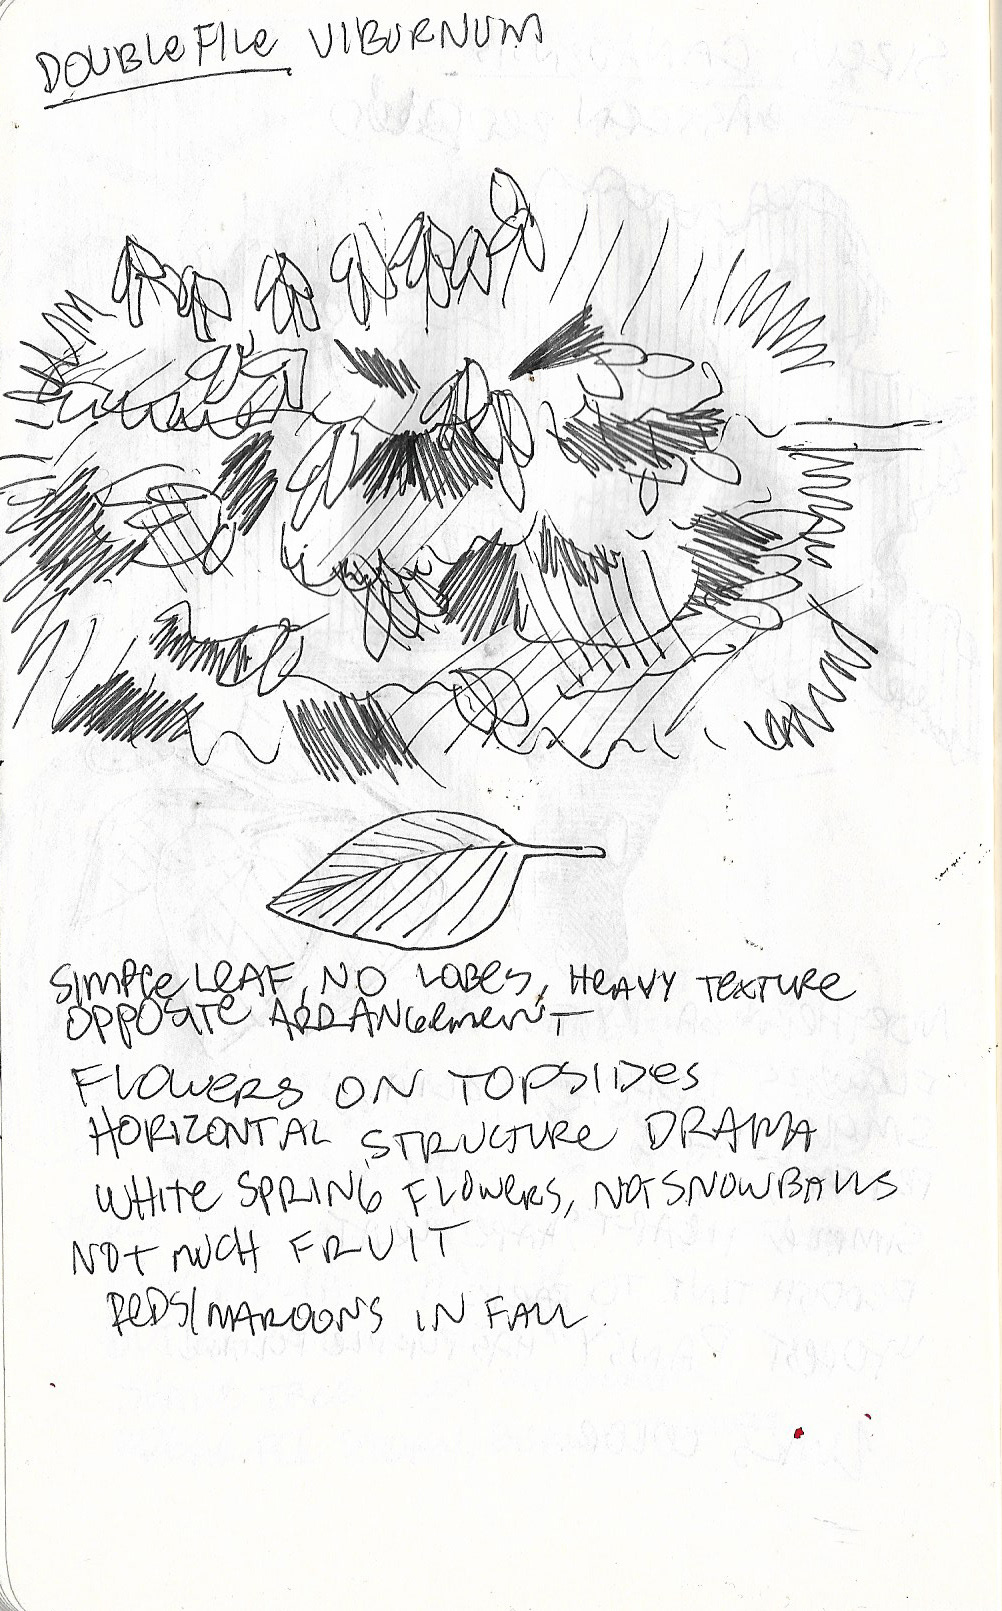 DOUBLEFILE VIBURNUM
SIMPLE LEAF, NO LOBES, HEAVY TEXTURE
OPPOSITE ARRANGEMENT
FLOWERS ON TOPSIDES
HORIZONTAL STRUCTURE DRAMA
WHITE SPRING FLOWERS, NOT SNOWBALLS
NOT MUCH FRUIT
REDS/MAROONS IN FALL